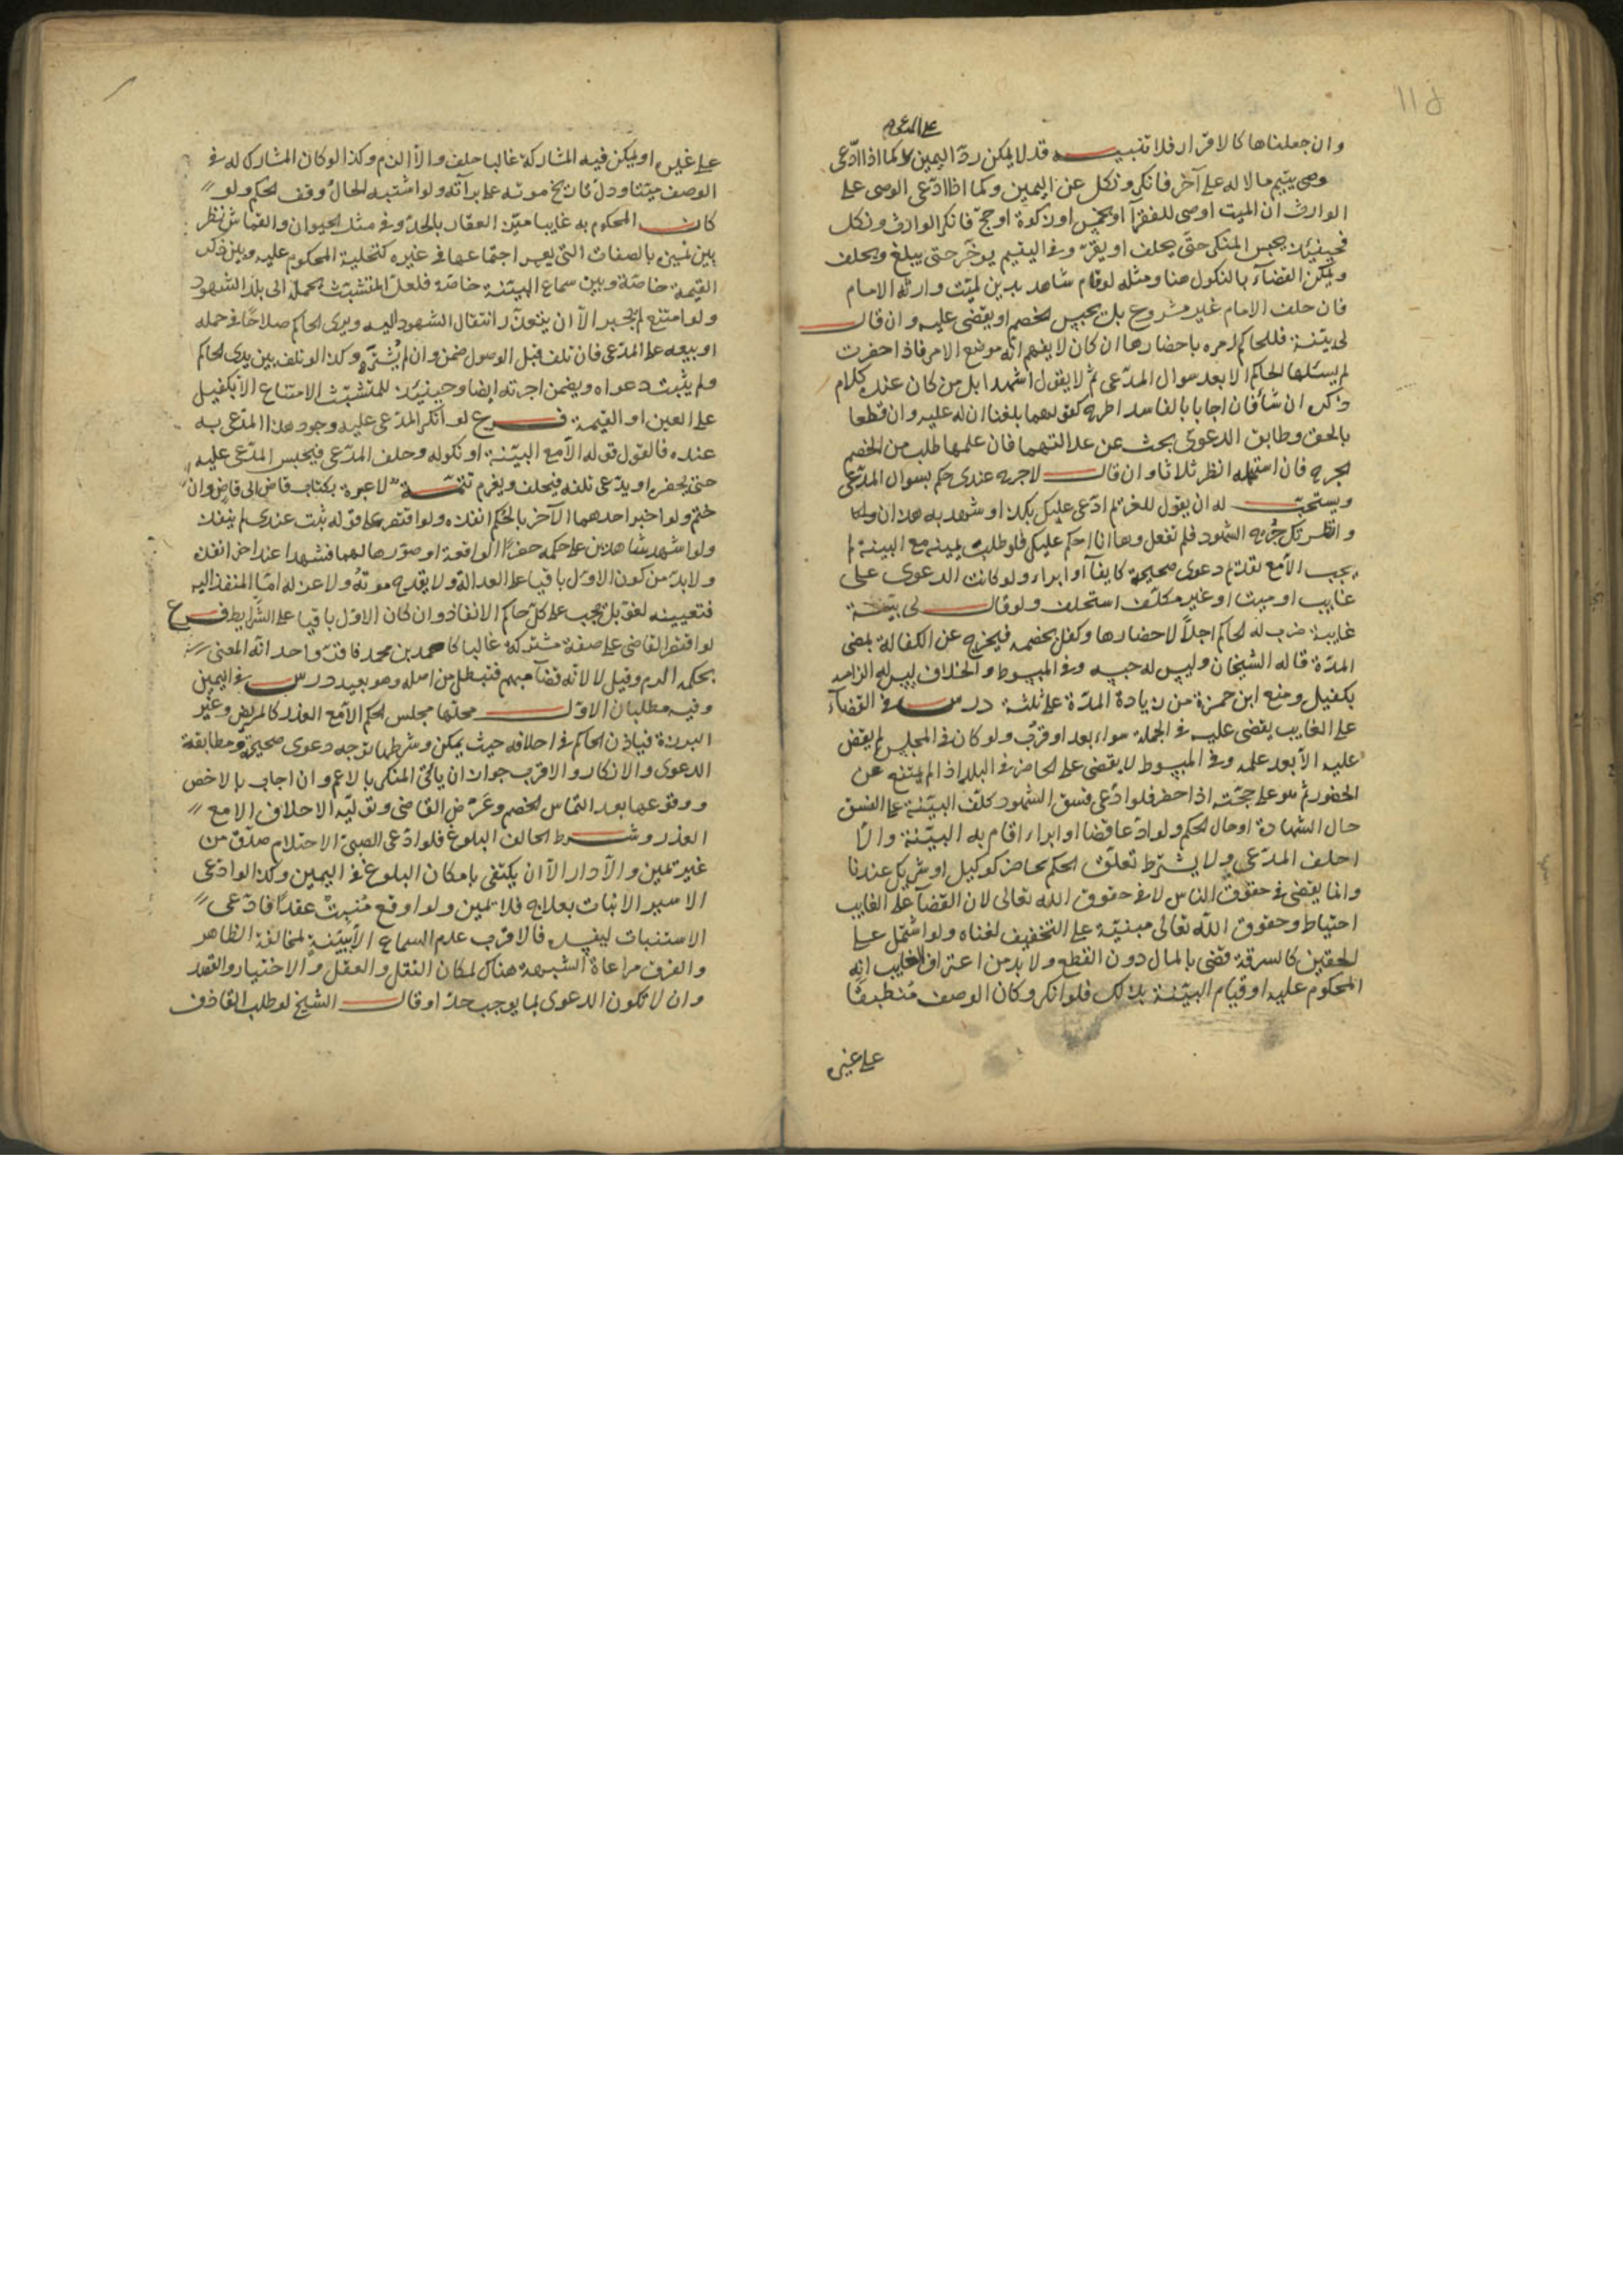 ١١٥
على المدعي
وان جعلناها كالاقرار فلا تنبيه قد لا يمكن رد اليمين كما اذا ادّعى
وصي يتيم مالا له على آخر فانكر ونكل عن اليمين وكما اذا ادّعى الوصي على
الوارث ان الميت اوصى للفقرآ او بخمس او زكوة او حجّ فانكر الوارث ونكل
فحينئذ يحبس المنكر حتى يحلف او يقرّ وفي اليتيم يوخر حتى يبلغ ويحلف
ويمكن القضآء بالنكول هنا ومثله لو قام شاهد بدين لميّت وارثه الامام
فان حلف الامام غير مشروع بل يحبس الخصم او يقضى عليه وان قال
لي بيّنة فللحاكم امره باحضارها ان كان لا يفهم انّه موضع الامر فاذا احضرت
لم يسئلها الحاكم الا بعد سوال المدّعى ثم لا يقول اشهدا بل من كان عنده كلام
ذكره ان شآء فان اجابا بالفاسد اطرحه كقولهما بلغنا ان له عليه وان قطعا
بالحق وطابق الدعوى بحث عن عدالتهما فان علمها طلب من الخصم
الجرح فان استمهله انظر ثلاثا وان قال لا جرح عندي حكم بسوال المدّعى
ويستحبّ له ان يقول للغريم ادّعى عليك بكذا وشهد به هذان ولك
وانظرتك جرح الشهود فلم تفعل وها انا احكم عليك فلو طلب يمينه مع البينة لم
يجب الّا مع تقديم دعوى صحيحة كايفآء او ابراء ولو كانت الدعوى على
غايب او ميت او غير مكلّف استحلف ولو قال لي بيّنة
غايبة ضرب له الحاكم اجلاً لاحضارها وكفل بخصمه فيخرج عن الكفالة بمضي
المدّة قاله الشيخان وليس له حبسه وفي المبسوط والخلاف ليس له الزامه
بكفيل ومنع ابن حمزة من زيادة المدّة على ثلثة درس في القضآء
على الغايب يقضى عليه في الجملة سواء بعد او قرب ولو كان في المجلس لم يقض
عليه الّا بعد علمه وفي المبسوط لا يقضى على الحاضر في البلد اذا لم يمتنع عن
الحضور ثم هو على حجّته اذا حضر فلو ادّعى فسق الشهود كلّف البيّنة على الفسق
حال الشهادة او حال الحكم ولو ادّعا قضا او ابراء اقام به البيّنة والّا
احلف المدّعي ولا يشترط تعلّق الحكم بحاضر كوكيل او شريك عندنا
وانما يقضى في حقوق الناس لا في حقوق الله تعالى لان القضآء على الغايب
احتياط وحقوق اللّه تعالى مبنيّة على التخفيف لغناه ولو اشتمل على
الحقين كالسرقة قضى بالمال دون القطع ولا بد من اعتراف الغايب انه
المحكوم عليه او قيام البيّنة بذلك فلو انكر وكان الوصف منطبقًا
على غيره
على غيره او يمكن فيه المشاركة غالبا حلف والّا الزم وكذا لو كان المشارك له في
الوصف ميّتا ودلّ تاريخ موته على برآئته ولو اشتبه الحال وقف الحكم ولو
كان المحكوم به غايبا ميّز العقار بالحدّ وفي مثل الحيوان والقماش نظر
بين تميين بالصفات التي يعسر اجتماعها في غيره كتحلية المحكوم عليه وبين ذكر
القيمة خاصّة وبين سماع البيّنة خاصّة فلعلّ المتشبّث يحمله الى بلد الشهود
ولو امتنع لم يجبر الّا ان يتعذّر انتقال الشهود اليه ويرى الحاكم صلاحًا في حمله
او بيعه على المدّعى فان تلف قبل الوصول ضمن وان لم يشتره وكذا لو تلف بين يدي الحاكم
ولم يثبت دعواه ويضمن اجرته ايضا وحينئذ للمتشبّث الامتناع الّا بكفيل
على العين او القيمة فرع لو انكر المدّعى عليه وجود هذا المدّعى به
عنده فالقول قوله الّا مع البيّنة او نكوله وحلف المدّعى فيحبس المدّعى عليه
حتى يحضره او يدّعى تلفه فيحلف ويغرم تتمّة لا عبرة بكتاب قاض الى قاض وان
ختم ولو اخبر احدهما الآخر بالحكم انفذه ولو اقتصر على قوله ثبت عندي لم ينفذ
ولو اشهد شاهدين على حكمه حضرا الواقعة او صوّرها لهما فشهدا عند آخر انفذ
ولا بدّ من كون الاوّل باقيا على العدالة ولا يقدح موته ولا عزله امّا المنفذ اليه
فتعيينه لغو بل يجب على كلّ حاكم الانفاذ وان كان الاوّل باقيا على الشرايط فرع
لو اقتصر القاضي على صفة مشتركة غالبا كاحمد بن محمد فاقرّ واحد انّه المعنى
بحكمه الزم وقيل لا لانّه قضآء مبهم فتبطل من اصله وهو بعيد درس في اليمين
وفيه مطلبان الاوّل محلها مجلس الحكم الّا مع العذر كالمريض وغير
البرزة فياذن الحاكم في احلافه حيث يمكن وشرطها توجه دعوى صحيحة ومطابقة
الدعوى والانكار والاقرب جواز ان ياتى المنكر بالاعم وان اجاب بالاخص
ووقوعها بعد التماس الخصم وعرض القاضي وتوليه الاحلاف الّا مع
العذر وشرط الحالف البلوغ فلو ادّعى الصبيّ الاحتلام صدّق من
غير يمين والّا دار الّا ان يكتفى بامكان البلوغ في اليمين وكذا لو ادّعى
الاسير الانبات بعلاج فلا يمين ولو اوقع منبت عقدًا فادّعى
الاستنبات ليفسده فالاقرب عدم السماع الّا ببيّنة لمخالفة الظاهر
والفرق مراعاة الشبهة هناك لمكان النقل والعقل والاختيار والقصد
وان لا تكون الدعوى بما يوجب حدّا وقال الشيخ لو طلب القاذف